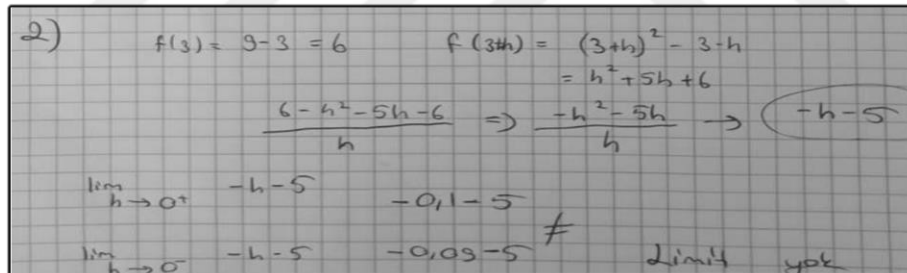 2) f(3) = 9-3 = 6 f(3+h) = (3+h)² - 3-h
= h² + 5h + 6
6 - h² - 5h - 6 / h ⇒ -h² - 5h / h → -h-5
lim h→0⁺ -h-5 -0,1-5
≠
lim h→0⁻ -h-5 -0,09-5 Limit yok